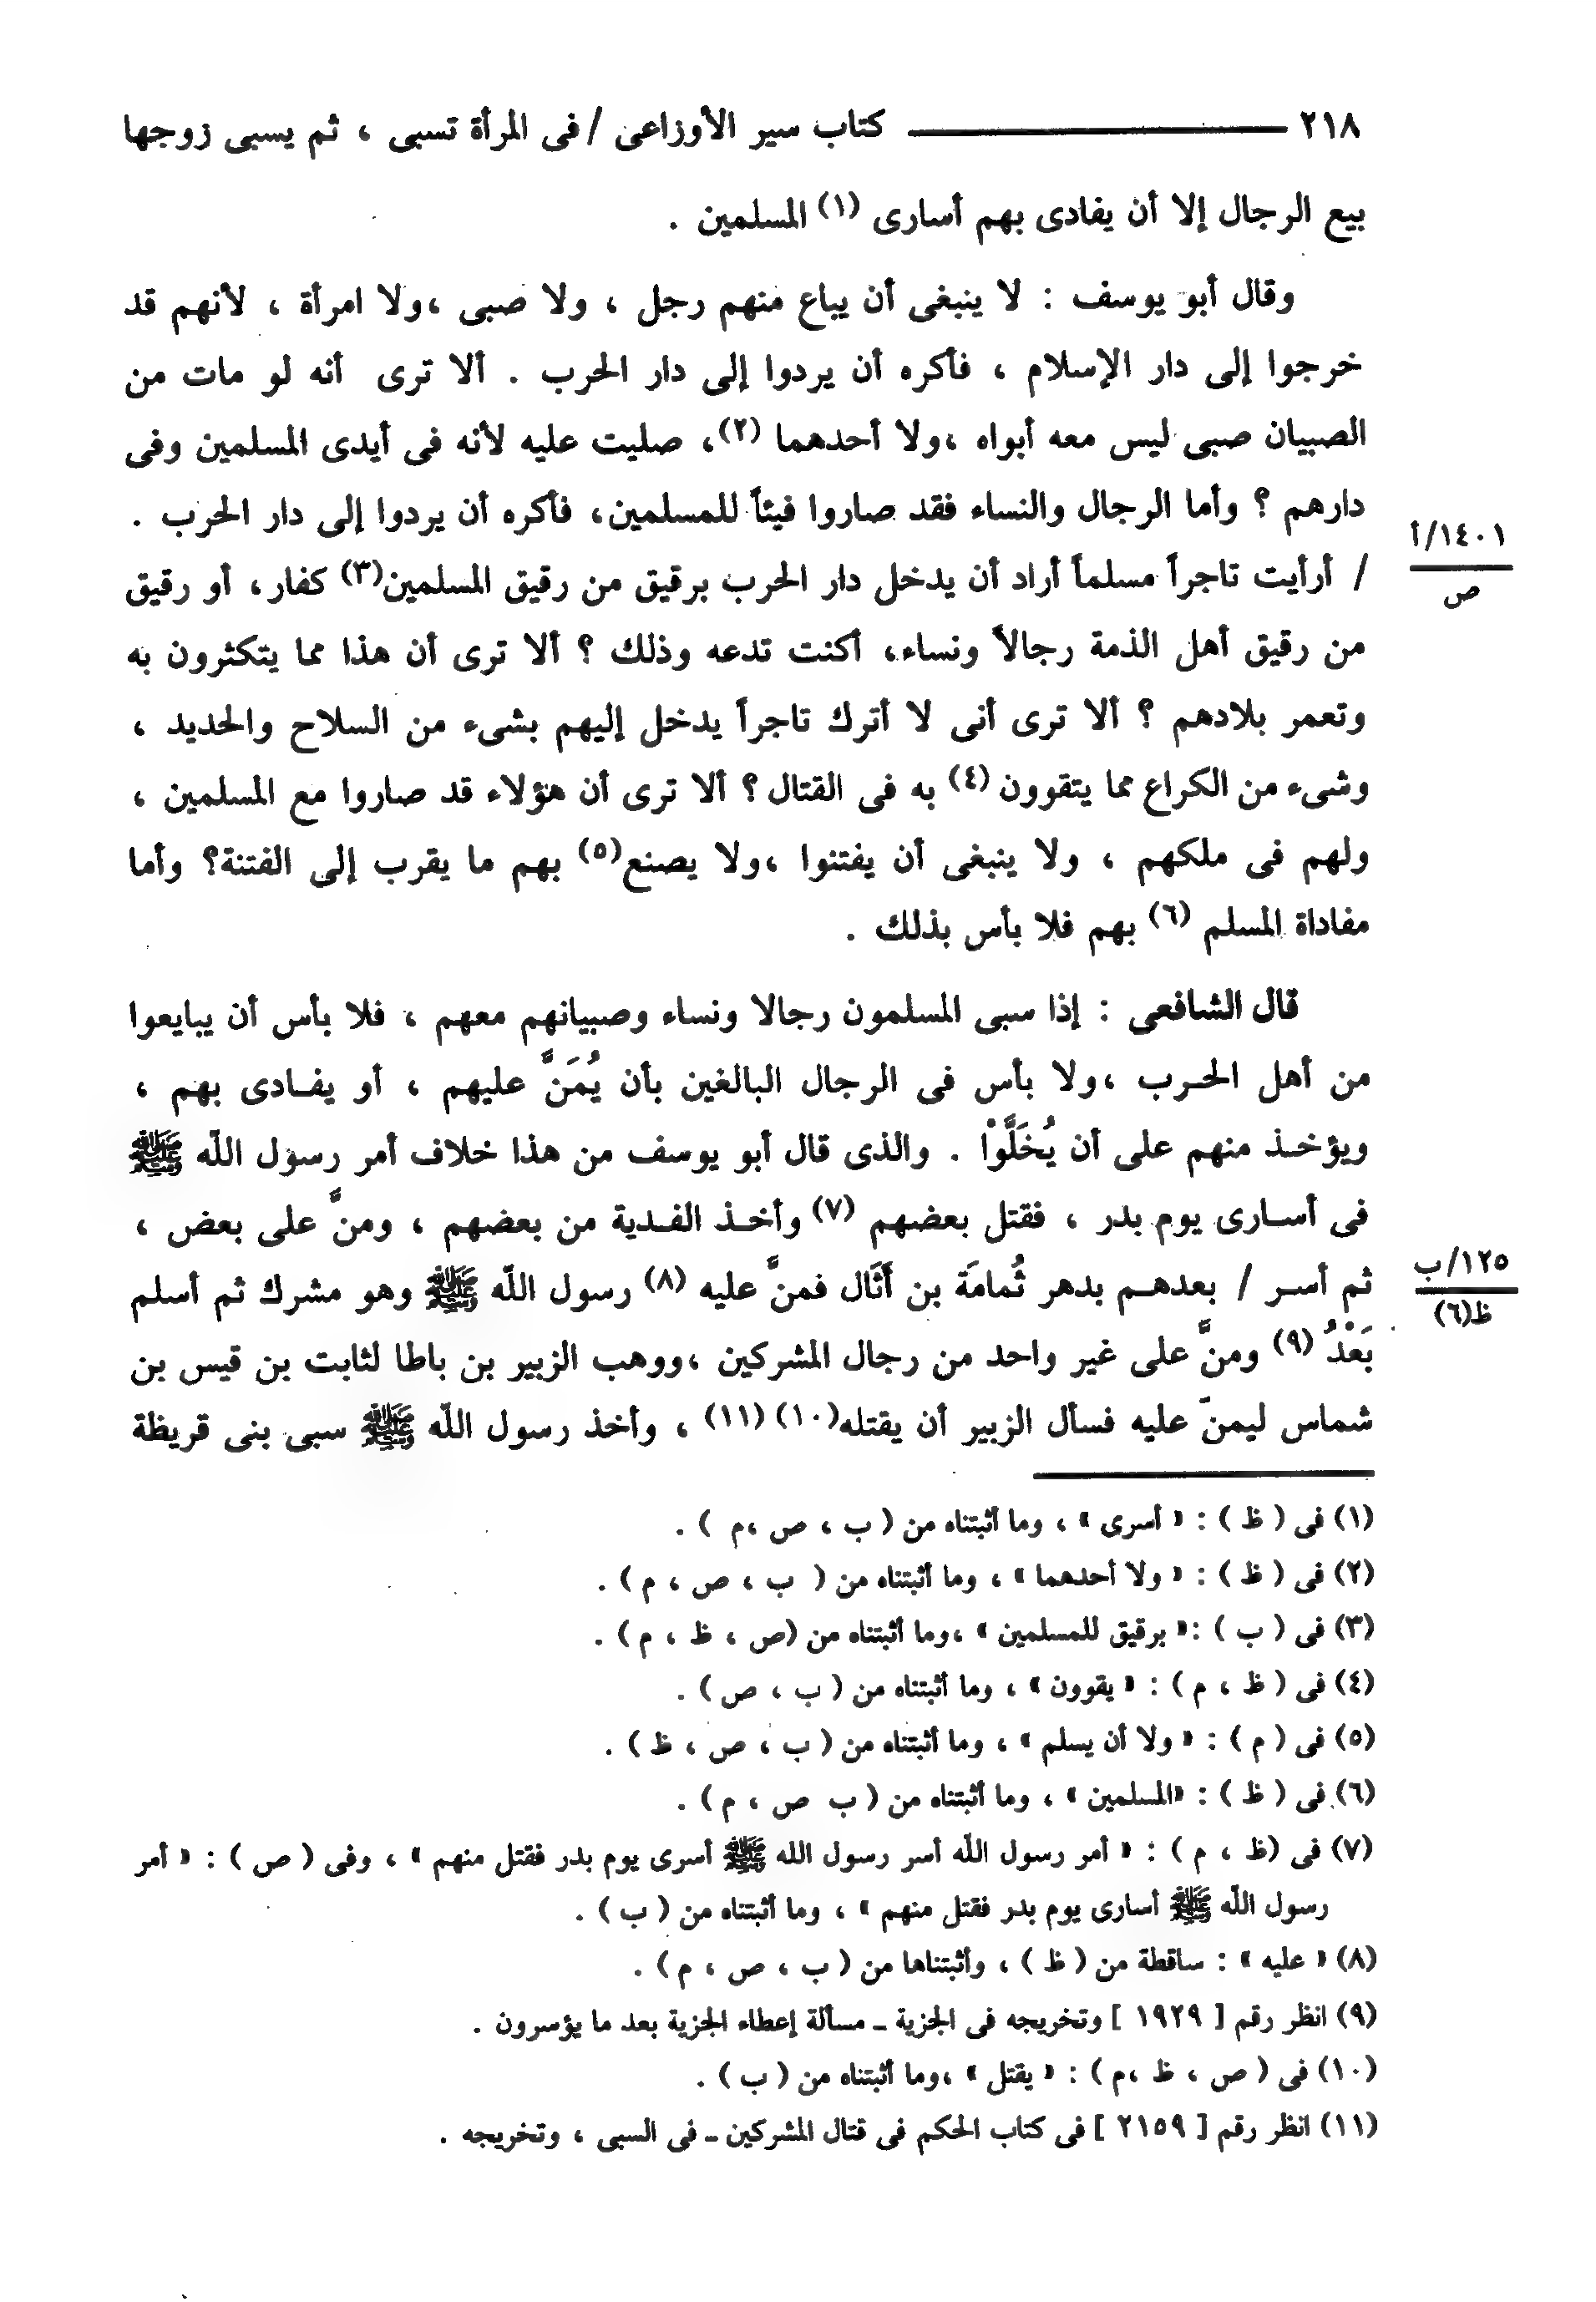 ٢١٨ ــــــــ كتاب سير الأوزاعى / فى المرأة تسبى ، ثم يسبى زوجها
بيع الرجال إلا أن يفادى بهم أسارى (١) المسلمين .
وقال أبو يوسف : لا ينبغى أن يباع منهم رجل ، ولا صبى ،ولا امرأة ، لأنهم قد
خرجوا إلى دار الإسلام ، فأكره أن يردوا إلى دار الحرب . ألا ترى أنه لو مات من
الصبيان صبى ليس معه أبواه ،ولا أحدهما (٢)، صليت عليه لأنه فى أيدى المسلمين وفى
دارهم ؟ وأما الرجال والنساء فقد صاروا فيئاً للمسلمين، فأكره أن يردوا إلى دار الحرب .
١٤٠١/أ
ص
/ أرأيت تاجراً مسلماً أراد أن يدخل دار الحرب برقيق من رقيق المسلمين(٣) كفار، أو رقيق
من رقيق أهل الذمة رجالاً ونساء، أكنت تدعه وذلك ؟ ألا ترى أن هذا مما يتكثرون به
وتعمر بلادهم ؟ ألا ترى أنى لا أترك تاجراً يدخل إليهم بشىء من السلاح والحديد ،
وشىء من الكراع مما يتقوون (٤) به فى القتال ؟ ألا ترى أن هؤلاء قد صاروا مع المسلمين ،
ولهم فى ملكهم ، ولا ينبغى أن يفتنوا ،ولا يصنع(٥) بهم ما يقرب إلى الفتنة؟ وأما
مفاداة المسلم (٦) بهم فلا بأس بذلك .
قال الشافعى : إذا سبى المسلمون رجالا ونساء وصبيانهم معهم ، فلا بأس أن يبايعوا
من أهل الحرب ،ولا بأس فى الرجال البالغين بأن يُمَنَّ عليهم ، أو يفادى بهم ،
ويؤخذ منهم على أن يُخَلَّوْا . والذى قال أبو يوسف من هذا خلاف أمر رسول اللّه ﷺ
فى أسارى يوم بدر ، فقتل بعضهم (٧) وأخذ الفدية من بعضهم ، ومنَّ على بعض ،
١٢٥/ب
ظ(٦)
ثم أسر / بعدهم بدهر ثُمامَة بن أَثَال فمنَّ عليه (٨) رسول اللّه ﷺ وهو مشرك ثم أسلم
بَعْدُ (٩) ومنَّ على غير واحد من رجال المشركين ،ووهب الزبير بن باطا لثابت بن قيس بن
شماس ليمنّ عليه فسأل الزبير أن يقتله(١٠) (١١) ، وأخذ رسول اللّه ﷺ سبى بنى قريظة
(١) فى ( ظ ) : « أسرى » ، وما أثبتناه من ( ب ، ص ،م ) .
(٢) فى ( ظ ) : « ولا أحدهما » ، وما أثبتناه من ( ب ، ص ، م ) .
(٣) فى ( ب ) :« برقيق للمسلمين » ،وما أثبتناه من (ص ، ظ ، م ) .
(٤) فى ( ظ ، م ) : « يقوون » ، وما أثبتناه من ( ب ، ص ) .
(٥) فى ( م ) : « ولا أن يسلم » ، وما أثبتناه من ( ب ، ص ، ظ ) .
(٦) فى ( ظ ) : «المسلمين » ، وما أثبتناه من ( ب ص ، م ) .
(٧) فى (ظ ، م ) : « أمر رسول اللّه أسر رسول الله ﷺ أسرى يوم بدر فقتل منهم » ، وفى ( ص ) : « أمر
رسول اللّه ﷺ أسارى يوم بدر فقتل منهم » ، وما أثبتناه من ( ب ) .
(٨) « عليه » : ساقطة من ( ظ ) ، وأثبتناها من ( ب ، ص ، م ) .
(٩) انظر رقم [ ١٩٢٩ ] وتخريجه فى الجزية ـ مسألة إعطاء الجزية بعد ما يؤسرون .
(١٠) فى ( ص ، ظ ،م ) : « يقتل » ،وما أثبتناه من ( ب ) .
(١١) انظر رقم [ ٢١٥٩ ] فى كتاب الحكم فى قتال المشركين ـ فى السبى ، وتخريجه .